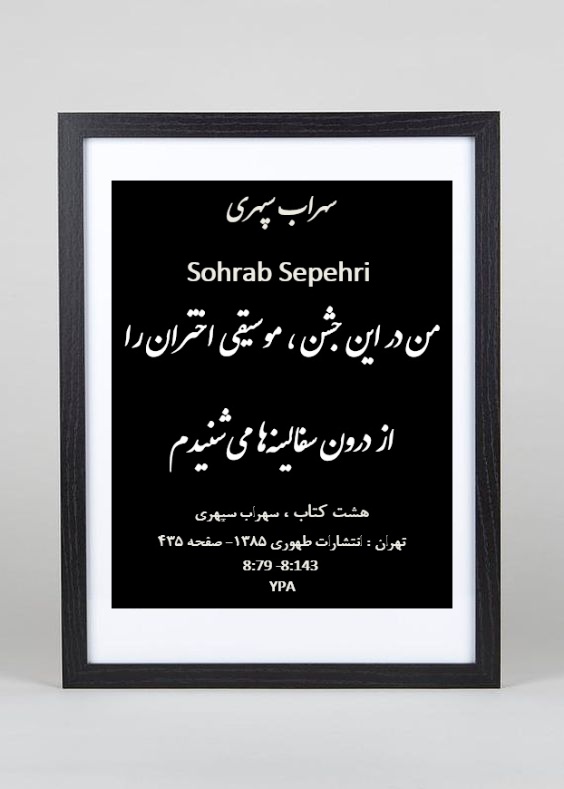 سهراب سپهری
Sohrab Sepehri
من در این جشن ، موسیقی اختران را
از درون سفالینه‌ها می‌شنیدم
هشت کتاب ، سهراب سپهری
تهران : انتشارات طهوری ۱۳۸۵- صفحه ۴۳۵
8:79 -8:143
YPA